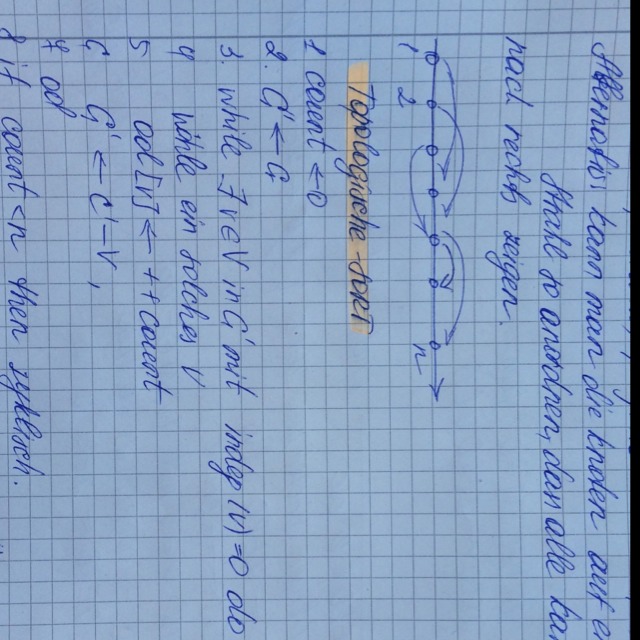 Alternativ: kann man die Knoten auf e
Strahl so anordnen, dass alle Kan
nach rechts zeigen.
1 2 n
Topologische-Sort
1. count ← 0
2. G' ← G
3. while ∃ v ∈ V in G' mit indeg (v) = 0 do
4 wähle ein solches v
5 ord[v] ← ++count
6 G' ← G' - v,
7 od
8 if count < n then zyklisch.